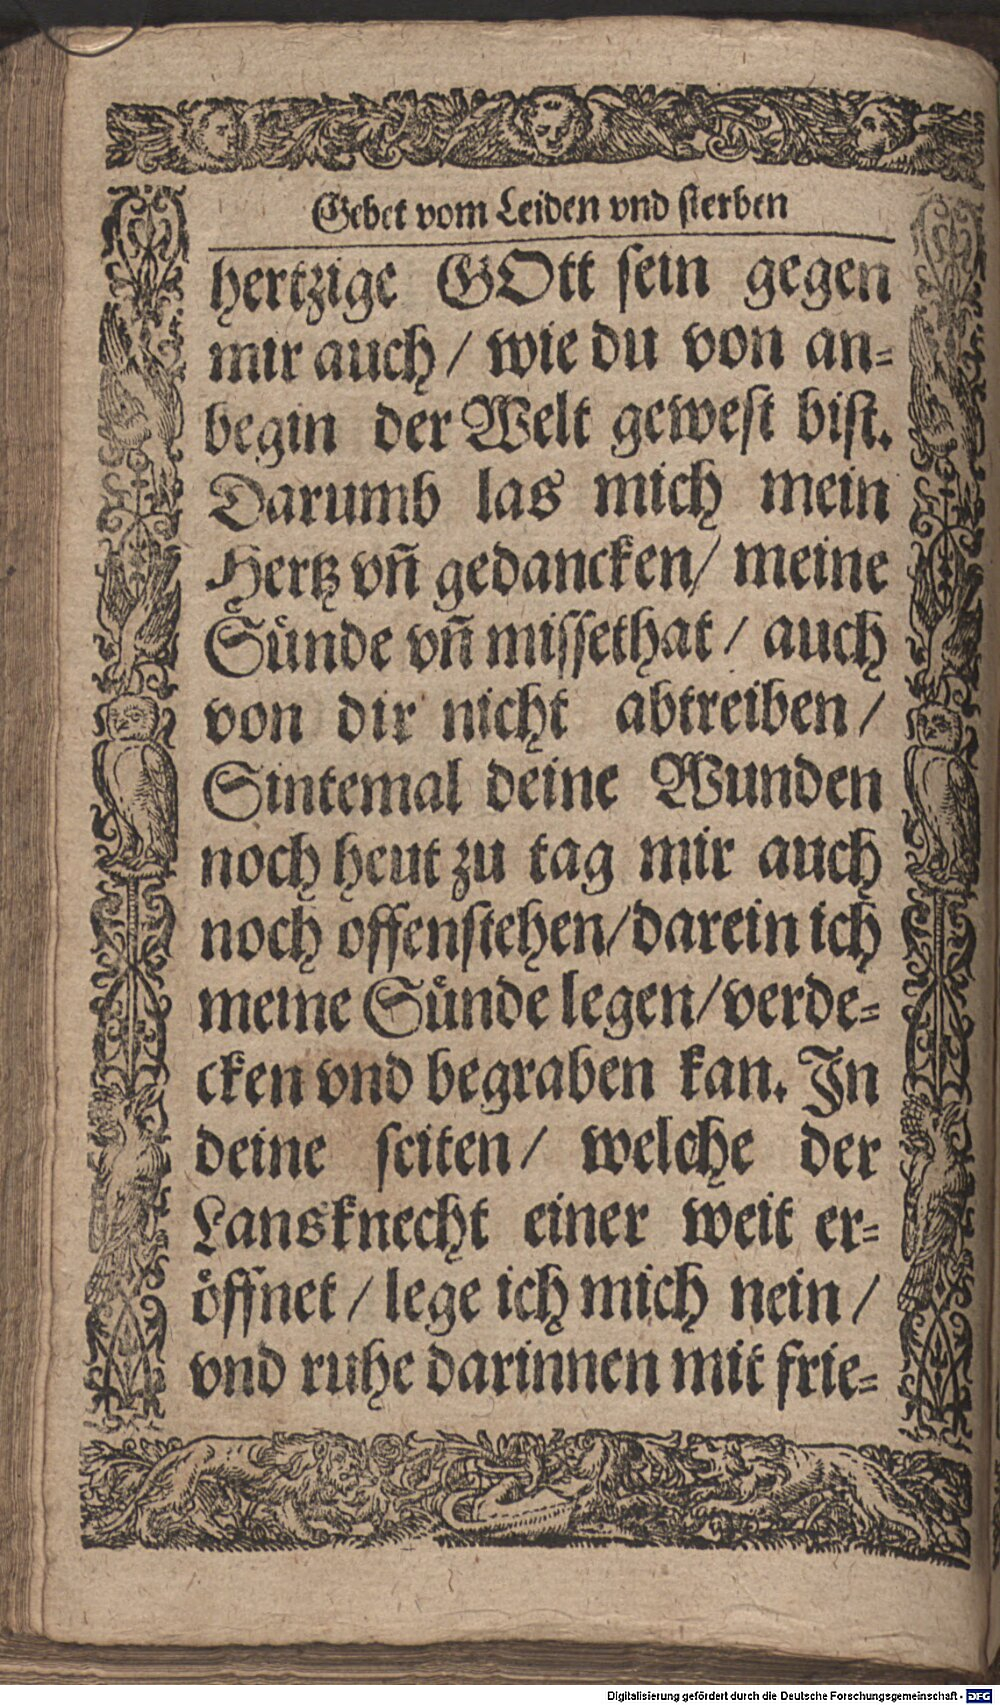 Gebet vom Leiden vnd sterben
hertzige GOtt sein gegen
mir auch / wie du von an⸗
begin der Welt gewest bist.
Darumb las mich mein
Hertz vn̄ gedancken / meine
Sünde vn̄ missethat / auch
von dir nicht abtreiben /
Sintemal deine Wunden
noch heut zu tag mir auch
noch offenstehen / darein ich
meine Sünde legen / verde⸗
cken vnd begraben kan. In
deine seiten / welche der
Lansknecht einer weit er⸗
öffnet / lege ich mich nein /
vnd ruhe darinnen mit frie⸗
Digitalisierung gefördert durch die Deutsche Forschungsgemeinschaft - DFG